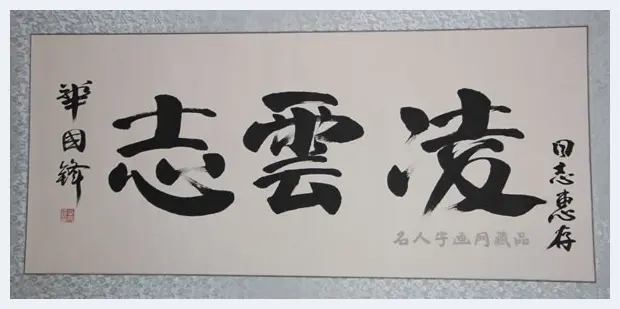 同志惠存
凌雲志
華國鋒
名人字画网藏品